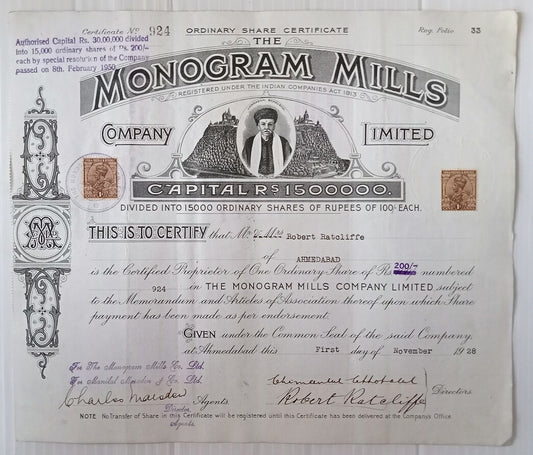 Certificate No 924
ORDINARY SHARE CERTIFICATE
Reg. Folio 33
Authorised Capital Rs. 30,00,000 divided
into 15,000 ordinary shares of Rs. 200/-
each by special resolution of the Company
passed on 8th. February 1950.
THE
MONOGRAM MILLS
REGISTERED UNDER THE INDIAN COMPANIES ACT 1913
COMPANY LIMITED
CAPITAL RS 1500000.
DIVIDED INTO 15000 ORDINARY SHARES OF RUPEES OF 100/- EACH.
THIS IS TO CERTIFY that Mr & Mrs Robert Ratcliffe
of AHMEDABAD
is the Certified Proprietor of One Ordinary Share of Rs 200/- numbered
924 in THE MONOGRAM MILLS COMPANY LIMITED, subject
to the Memorandum and Articles of Association thereof upon which Share
payment has been made as per endorsement.
GIVEN under the Common Seal of the said Company.
at Ahmedabad this First day of November 1928
For The Monogram Mills Co. Ltd.
For Manilal Marsden & Co. Ltd.
Charles Marsden Agents.
Director
Agents.
Chimanlal
Robert Ratcliffe
Directors
NOTE No Transfer of Share in this Certificate will be registered until this Certificate has been delivered at the Companys Office.